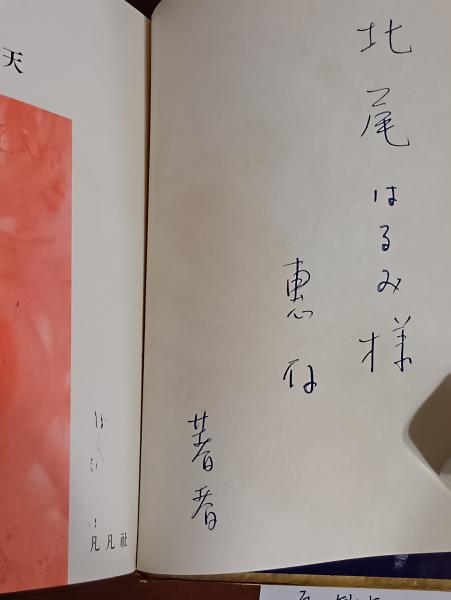 北尾はるみ様
惠存
著者
天
凡凡社